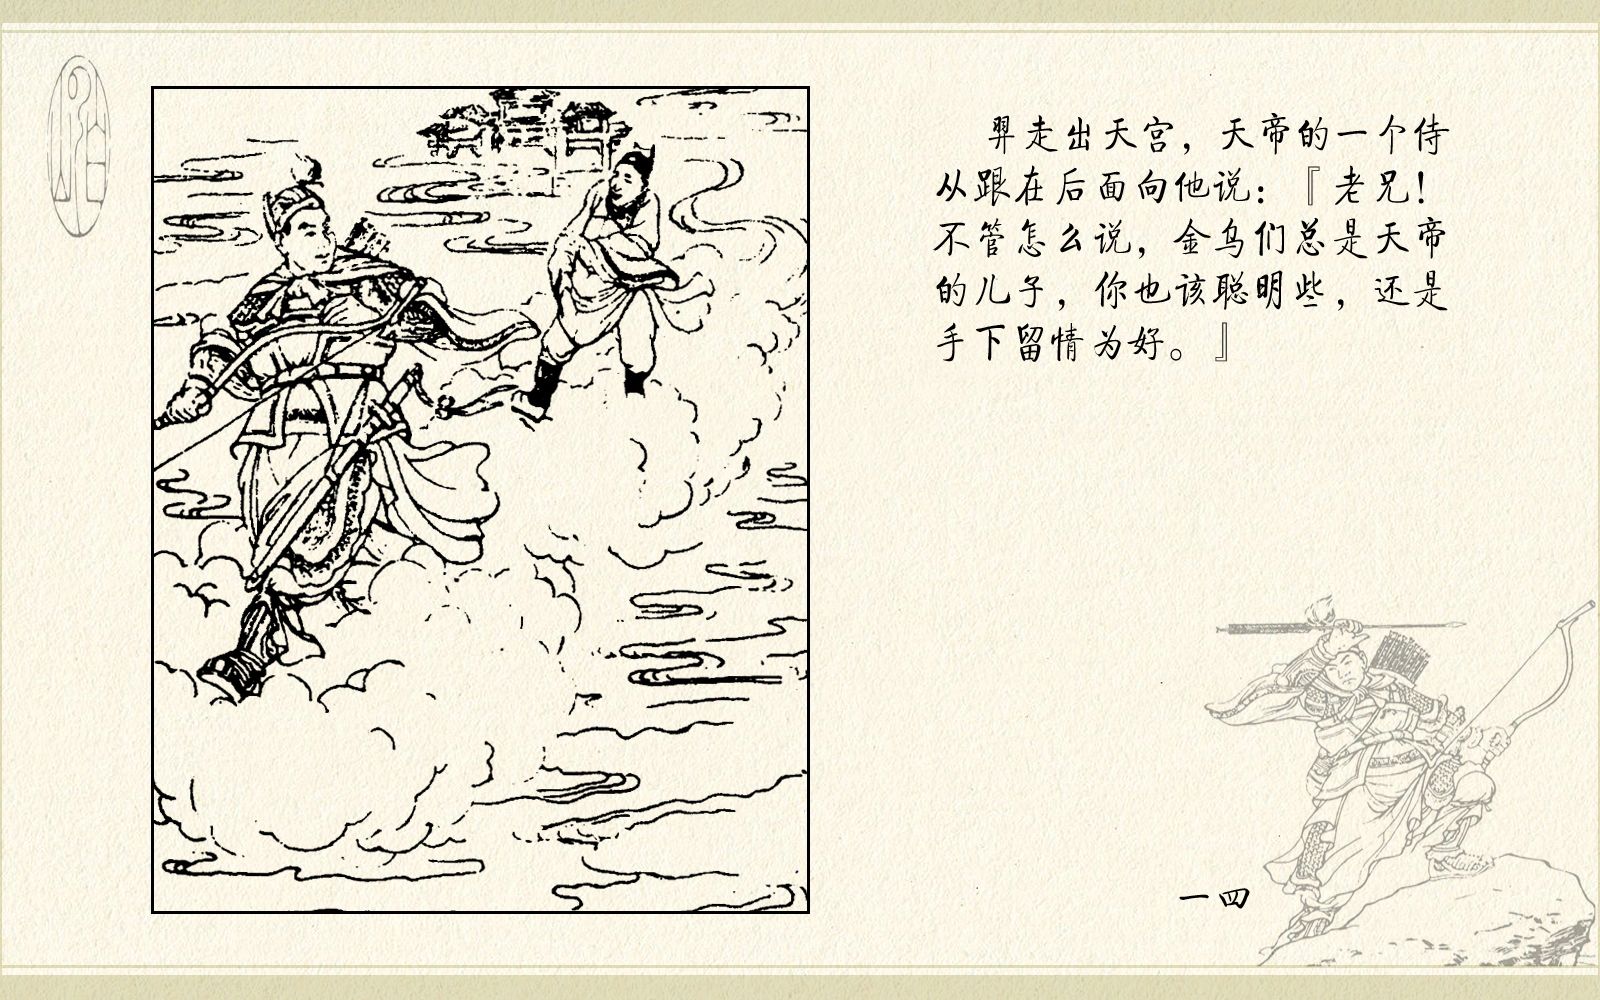 羿走出天宫，天帝的一个侍
从跟在后面向他说：『老兄！
不管怎么说，金乌们总是天帝
的儿子，你也该聪明些，还是
手下留情为好。』
一四